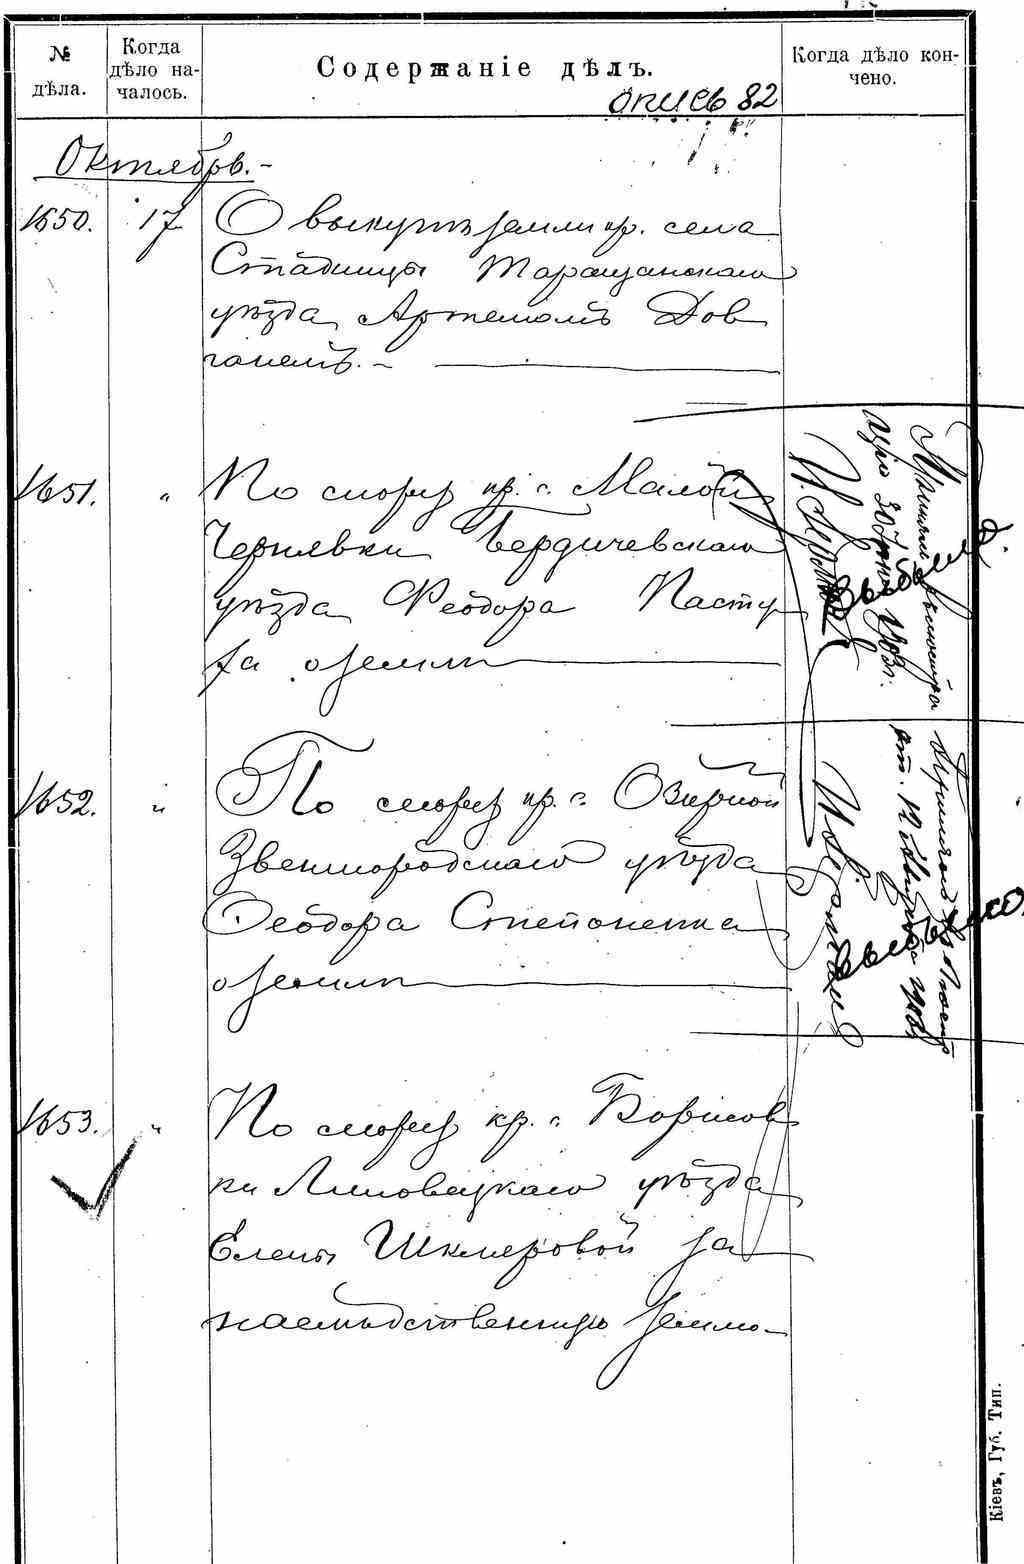 № дѣла.
Когда дѣло на-
чалось.
Содержаніе дѣлъ.
Когда дѣло кон-
чено.
опись 82
Октябрь.-
1650. 17 О выкупѣ земли кр. села
Стадницы Таращанскаго
уѣзда Артемомъ Дов
ганемъ.-
1651. " По спору кр. с. Малой
Чернявки Бердичевскаго
уѣзда Феодора Пасту
ха о земли
1652. " По спору кр. с. Озирной
Звенигородскаго уѣзда
Феодора Степаненка
о земли
1653. " По спору кр. с. Борисов
ки Липовецкаго уѣзда
Елены Шкляровой за
наслѣдственную землю
выбыло.
выбыло.
Кіевъ, Губ. Тип.